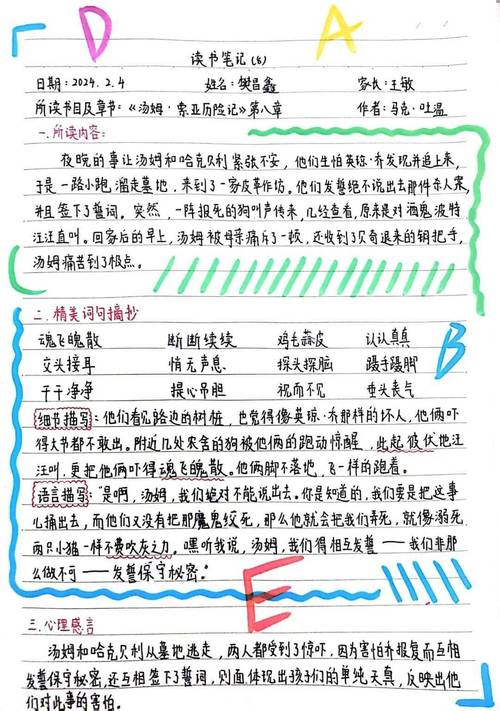 D A
读书笔记(8)
日期:2024.2.4 姓名:樊昌鑫 家长:王敏
所读书目及章节:《汤姆·索亚历险记》第八章 作者:马克·吐温
一.所读内容:
夜晚的事让汤姆和哈克贝利紧张不安,他们生怕英琼·乔发现并追上来,
于是一路小跑,溜走墓地,来到了一家皮革作坊。他们发誓绝不说出去那件杀人案,
并且签下了誓词。突然,一阵报死的狗叫声传来,几经查看,原来是对酒鬼波特
汪汪直叫。回家后的早上,汤姆被母亲痛斥了一顿,还收到了贝奇退来的钥把手,
汤姆痛苦到了极点。
二.精美词句摘抄
魂飞魄散 断断续续 鸡毛蒜皮 认认真真
交头接耳 悄无声息 探头探脑 蹑手蹑脚
干干净净 提心吊胆 视而不见 垂头丧气
B
细节描写:他们看见路边的树桩,也觉得像英琼·乔那样的坏人,他俩吓
得大节都不敢出。附近几处农舍的狗被他俩的跑动惊醒,此起彼伏地汪
汪叫,更把他俩吓得魂飞魄散。他俩脚不落地,飞一样的跑着。
语言描写:“是啊,汤姆,我们绝对不能说出去。你是知道的,我们要是把这事
儿捅出去,而他们又没有把那魔鬼绞死,那么他就会把我们弄死,就像溺死
两只小猫一样不费吹灰之力。嘿听我说,汤姆,我们得相互发誓——我们非那
么做不可——发誓保守秘密.”
E
三.心理感言
汤姆和哈克贝利从墓地逃走,两人都受到了惊吓,因为害怕乔报复而互相
发誓保守秘密,还互相签下了誓词,侧面体现出孩子们的单纯天真,反映出他
们对此事的害怕。